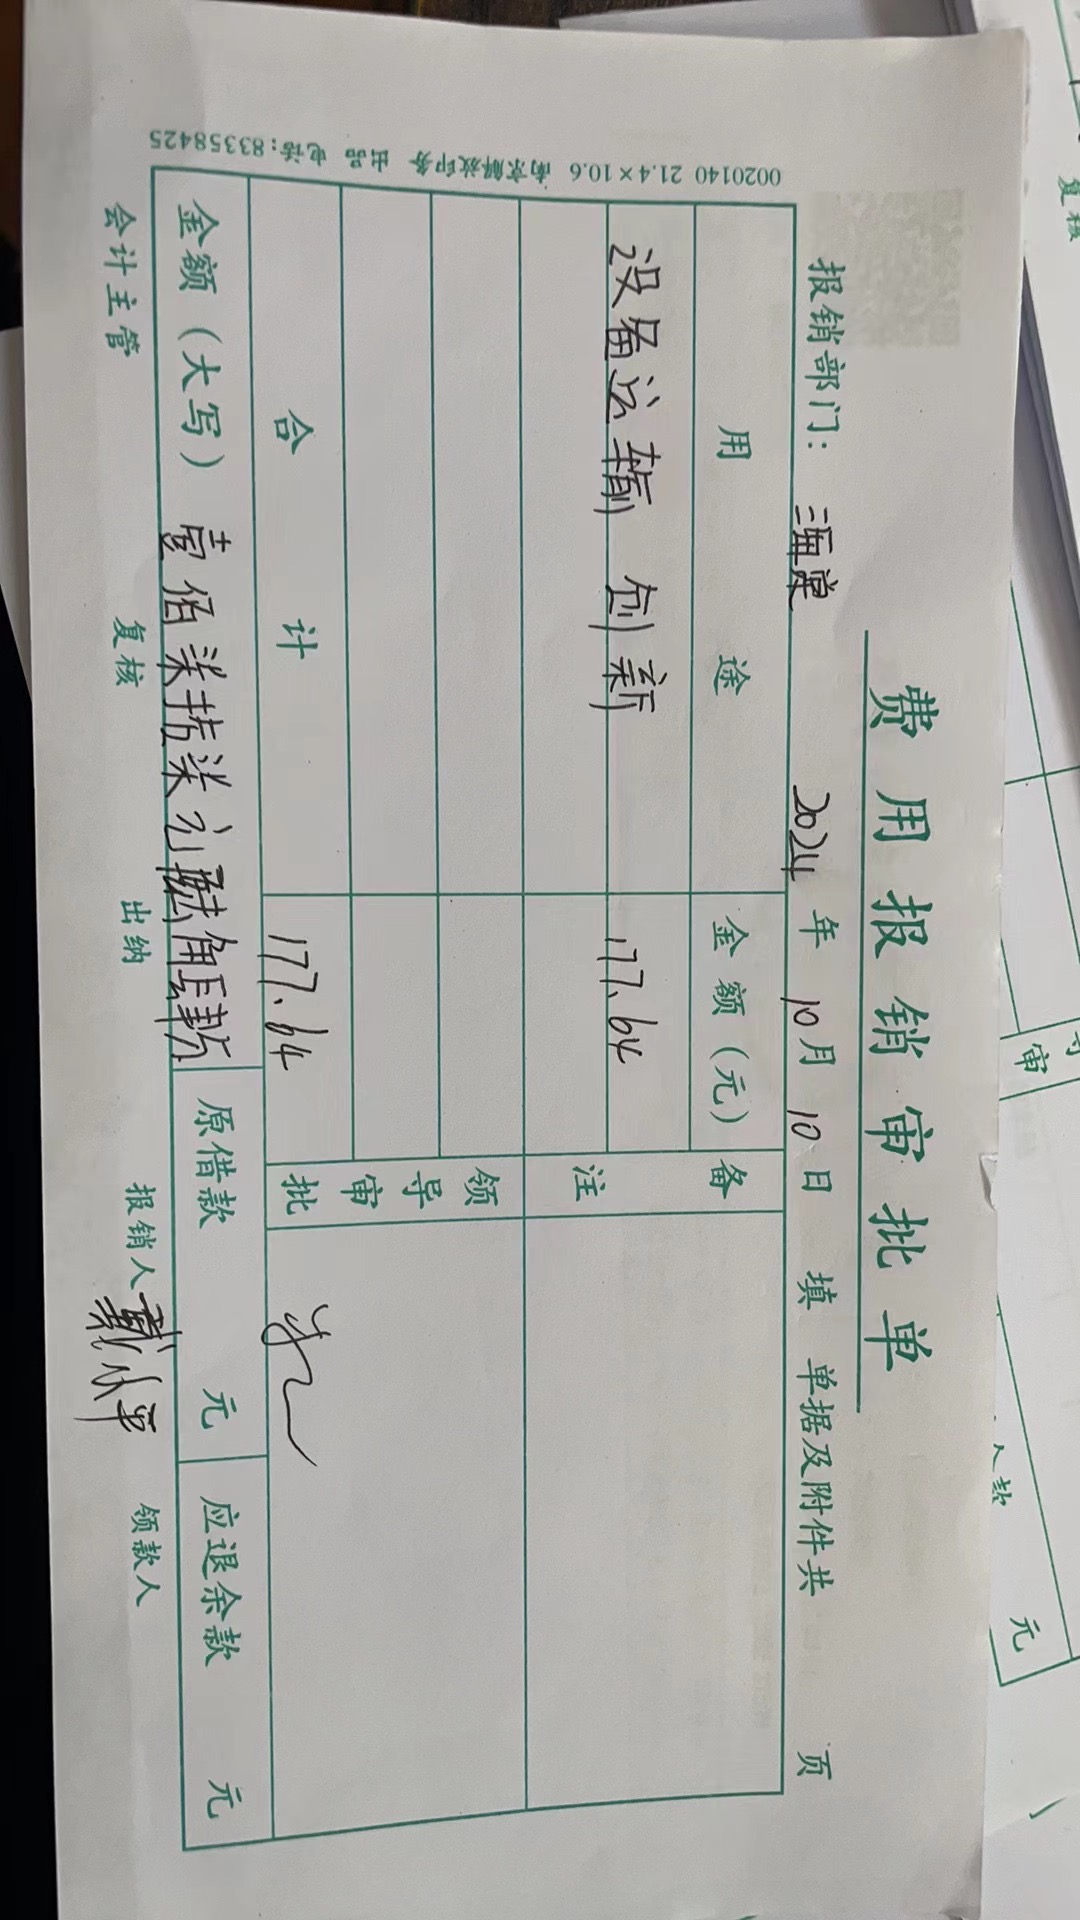 费用报销审批单
报销部门： 海棠 2024 年 10 月 10 日 填 单据及附件共 页
用途 金额（元） 备注
设备运输 创新 177.64
领导审批
合计 177.64
金额（大写）壹佰柒拾柒元陆角肆分 原借款 元 应退余款 元
会计主管 复核 出纳 报销人 领款人
0020140 21.4×10.6 南京解放印务 出品 电话：83358425
复核
审
人款
元